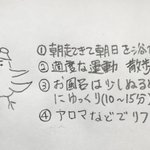 ①朝起きて朝日を浴
②適度な運動 散歩
③お風呂は少しぬるめ
にゆっくり(10~15分)
④アロマなどでリフ